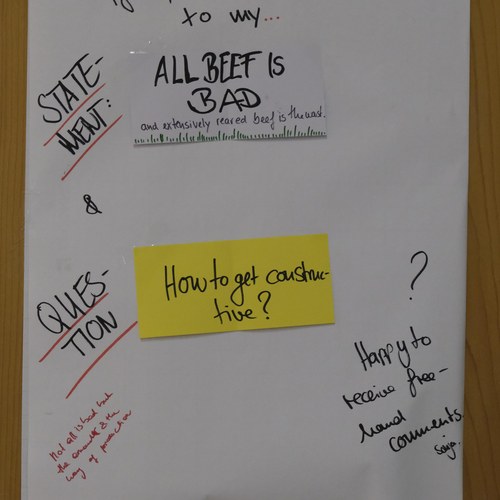 to my...
STATE-
MENT:
ALL BEEF IS
BAD
and extensively reared beef is the worst.
&
QUES-
TION
How to get construc-
tive?
?
Happy to
receive free-
hand
comments.
Not all is bad but
the amount & the
way of production